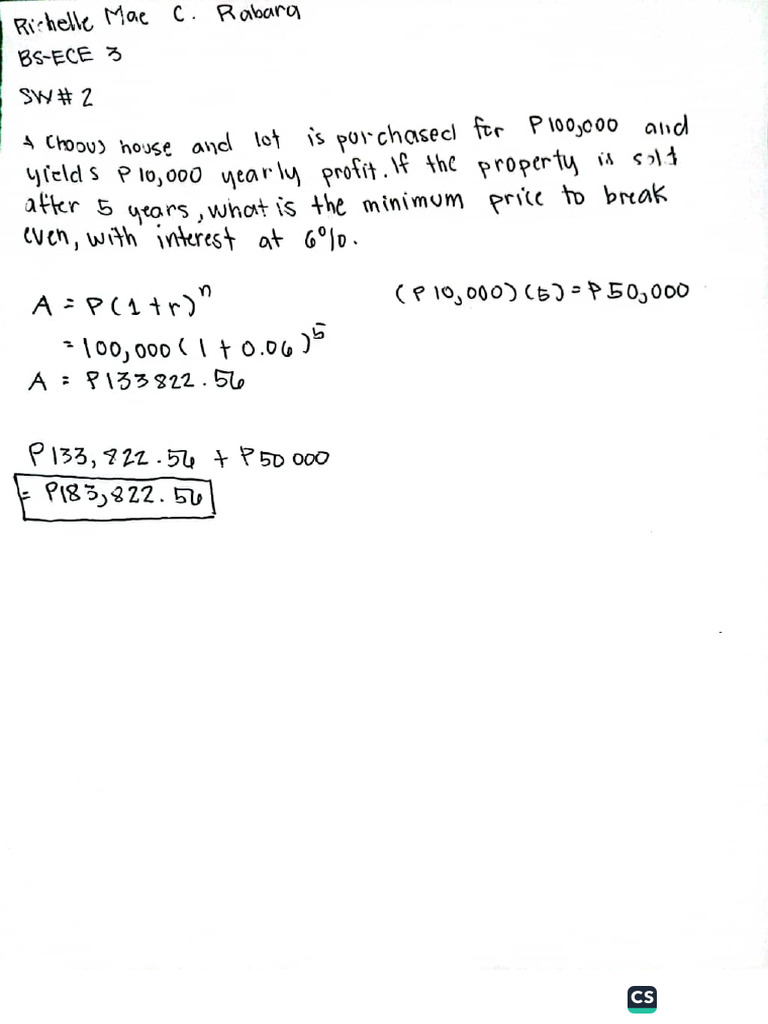 Richelle Mae C. Rabara
BS-ECE 3
SW# 2
A house and lot is purchased for ₱100,000 and
yields ₱10,000 yearly profit. If the property is sold
after 5 years, what is the minimum price to break
even, with interest at 6%.
A = P(1+r)ⁿ (₱10,000)(5)=₱50,000
=100,000(1+0.06)⁵
A = ₱133822.56
₱133,822.56 + ₱50 000
= ₱183,822.56
CS